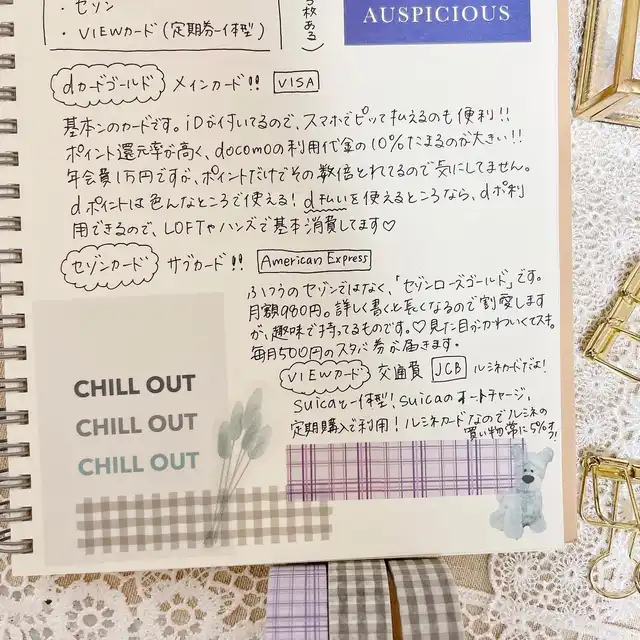 ・セゾン
・VIEWカード(定期券一体型)
枚ある)
AUSPICIOUS
dカードゴールド メインカード!! VISA
基本のカードです。iDが付いてるので、スマホでピッて払えるのも便利!!
ポイント還元率が高く、docomoの利用代金の10%たまるのが大きい!!
年会費1万円ですが、ポイントだけでその数倍とれてるので気にしてません。
dポイントは色んなところで使える!d払いを使えるところなら、dポ利
用できるので、LOFTやハンズで基本消費してます♡
セゾンカード サブカード!! American Express
ふつうのセゾンではなく、「セゾンローズゴールド」です。
月額980円。詳しく書くと長くなるので割愛します
が、趣味で持ってるものです。♡見た目がかわいくてスキ。
毎月500円のスタバ券が届きます。
VIEWカード 交通費 JCB ルミネカードだよ!
Suicaと一体型!Suicaのオートチャージ、
定期購入で利用!ルミネカードなのでルミネの
買い物常に5%オフ!
CHILL OUT
CHILL OUT
CHILL OUT